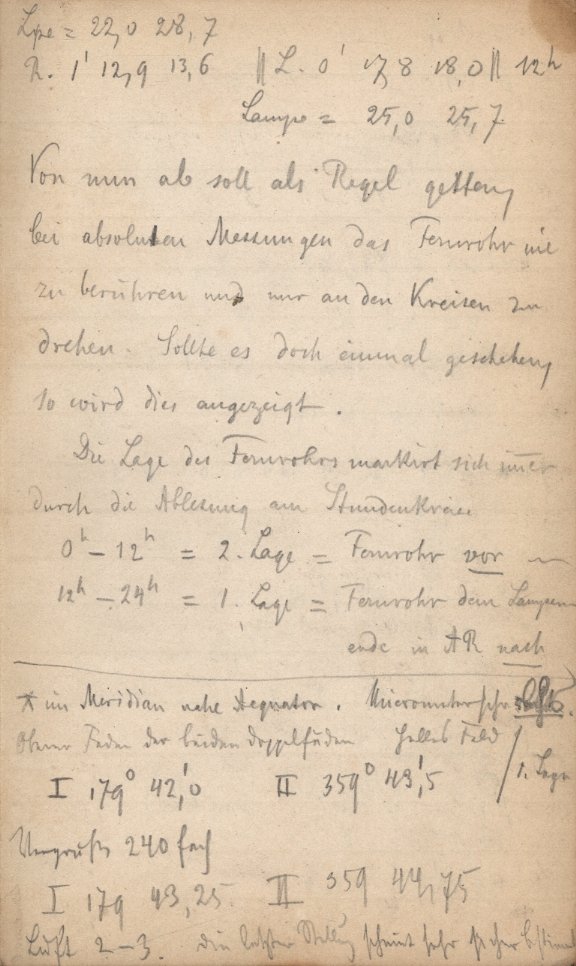 Lpe = 22,0 28,7
R. 1' 12,9 13,6 || L. 0' 17,8 18,0 || 12h
Lampe = 25,0 25,7
Von nun ab soll als Regel gelten,
bei absoluten Messungen das Fernrohr nie
zu berühren und nur an den Kreisen zu
drehen. Sollte es doch einmal geschehen,
so wird dies angezeigt.
Die Lage des Fernrohrs markirt sich immer
durch die Ablesung am Stundenkreise
0h – 12h = 2. Lage = Fernrohr vor —
12h – 24h = 1. Lage = Fernrohr dem Lampen-
ende in AR nach
* im Meridian nahe Aequator. Micrometerschr.
Oberer Faden der beiden Doppelfäden Helles Feld
I 179° 42,'0 II 359° 43,'5 / 1. Lage
Vergrößr 240 fach
I 179 43,25 II 359 44,75
Luft 2–3. Die letzte Stellg scheint sehr sicher bestimmt